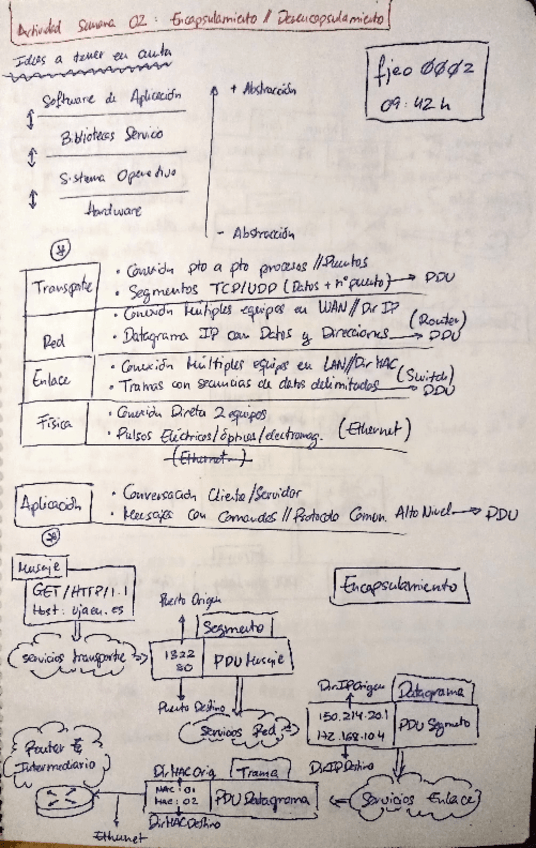 Actividad Semana 02: Encapsulamiento // Desencapsulamiento
Ideas a tener en cuenta
fjeo 0002
09:42 h
Software de Aplicación
+ Abstracción
Bibliotecas Servicio
Sistema Operativo
Hardware
- Abstracción
Transporte
• Conexión pto a pto procesos // Puertos
• Segmentos TCP/UDP (Datos + nº puerto) → PDU
Red
• Conexión Múltiples equipos en WAN // Dir IP
(Router)
• Datagrama IP con Datos y Direcciones → PDU
Enlace
• Conexión Múltiples equipos en LAN/Dir MAC
(Switch)
• Tramas con secuencias de datos delimitados → PDU
Física
• Conexión Directa 2 equipos
• Pulsos Eléctricos/ópticos/electromag. (Ethernet)
(Ethernet)
Aplicación
• Conversación Cliente/Servidor
• Mensajes con Comandos // Protocolo Comun. Alto Nivel → PDU
Mensaje
GET/HTTP/1.1
Host: ujaen.es
Encapsulamiento
Puerto Origen
Segmento
servicios transporte
1322
80
PDU Mensaje
Puerto Destino
Servicios Red
Dir IP Origen
Datagrama
150.214.20.1
172.168.10.4
PDU Segmento
Dir IP Destino
Router
Intermediario
Dir MAC Orig
Trama
MAC: 01
MAC: 02
PDU Datagrama
Servicios Enlace
Dir MAC Destino
Ethernet